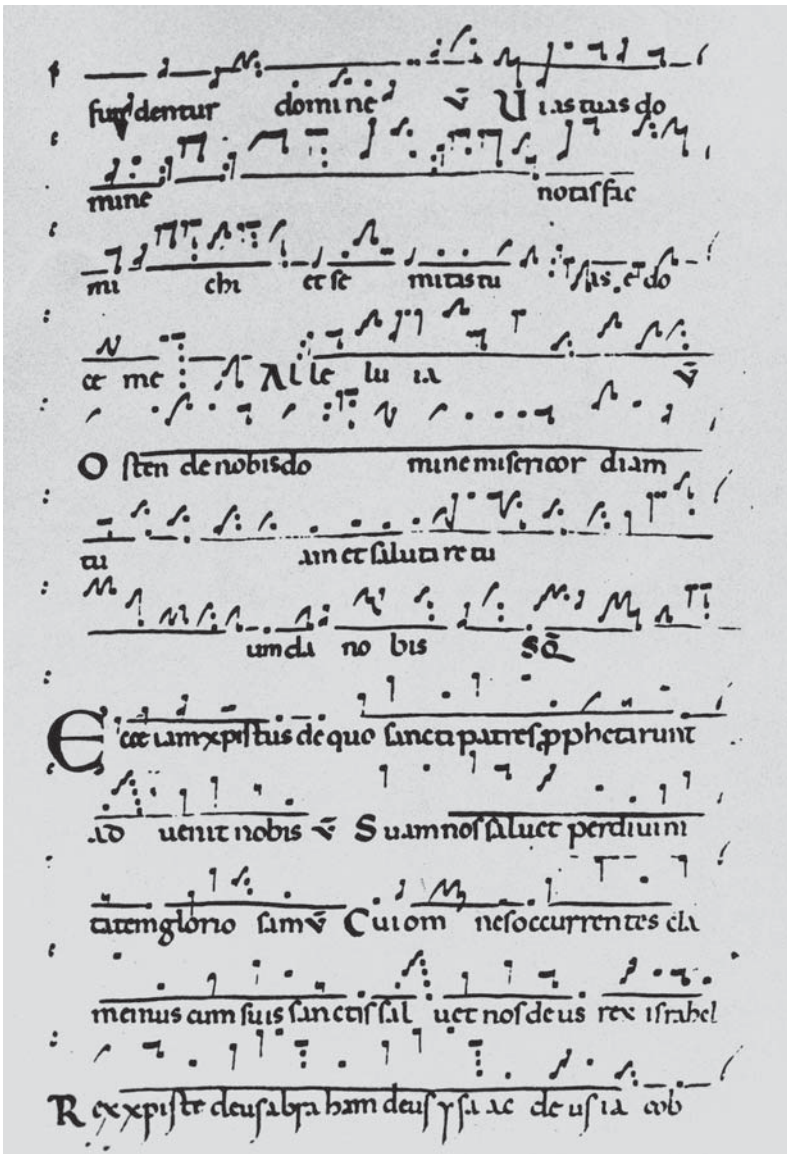 fundentur domine v̄ Uias tuas do
mine notas fac
mi chi et se mitas tu as. e do
ce me Al le lu ia v̄
O sten de nobis do mine misericor diam
tu am et saluta re tu
um da no bis SQ̄
Ecce iam xpistus de quo sancti patres pphetarunt
ad uenit nobis v̄ Suam nos saluet per diuini
tatem glorio sam v̄ Cui om nes occurrentes cla
memus cum suis sanctis sal uet nos deus rex israhel
Rex xpiste deus abra ham deus ysa ac de us ia cob